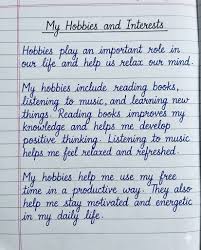 My Hobbies and Interests
Hobbies play an important role in
our life and help us relax our mind.
My hobbies include reading books,
listening to music, and learning new
things. Reading books improves my
knowledge and helps me develop
positive thinking. Listening to music
helps me feel relaxed and refreshed.
My hobbies help me use my free
time in a productive way. They also
help me stay motivated and energetic
in my daily life.